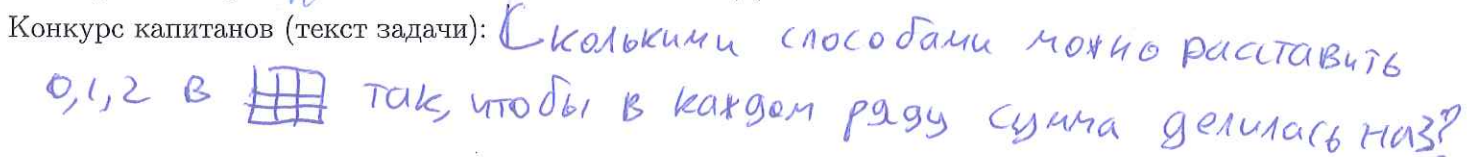 Конкурс капитанов (текст задачи): Сколькими способами можно расставить
0,1,2 в так, чтобы в каждом ряду сумма делилась на 3?